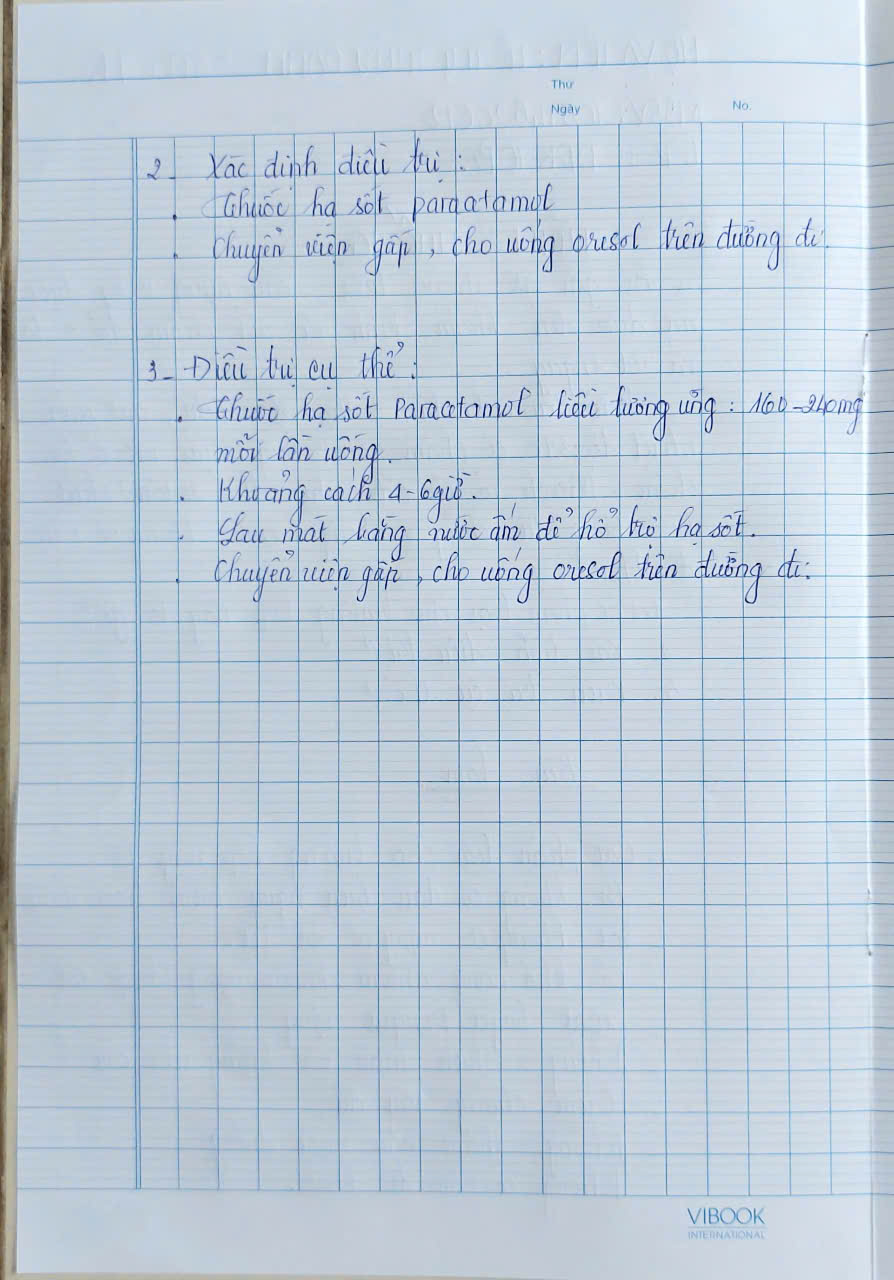 Thứ
Ngày No.
2- Xác định điều trị:
. Thuốc hạ sốt paracetamol
. Chuyển viện gấp, cho uống oresol trên đường đi.
3- Điều trị cụ thể:
. Thuốc hạ sốt Paracetamol liều tương ứng: 160-240mg
mỗi lần uống.
. Khoảng cách 4-6giờ.
. Lau mát bằng nước ấm để hổ trợ hạ sốt.
. Chuyển viện gấp, cho uống oresol trên đường đi.
VIBOOK
INTERNATIONAL